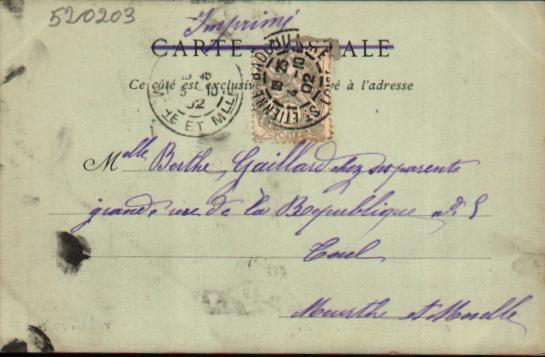 520203
Imprimé
CARTE POSTALE
Ce côté est exclusivement réservé à l'adresse
02
ET M
ST ETIENNE BADOUILLERE
02
Melle Berthe Gaillard chez ses parents
grande rue de la République No 5
Toul
Meurthe et Moselle